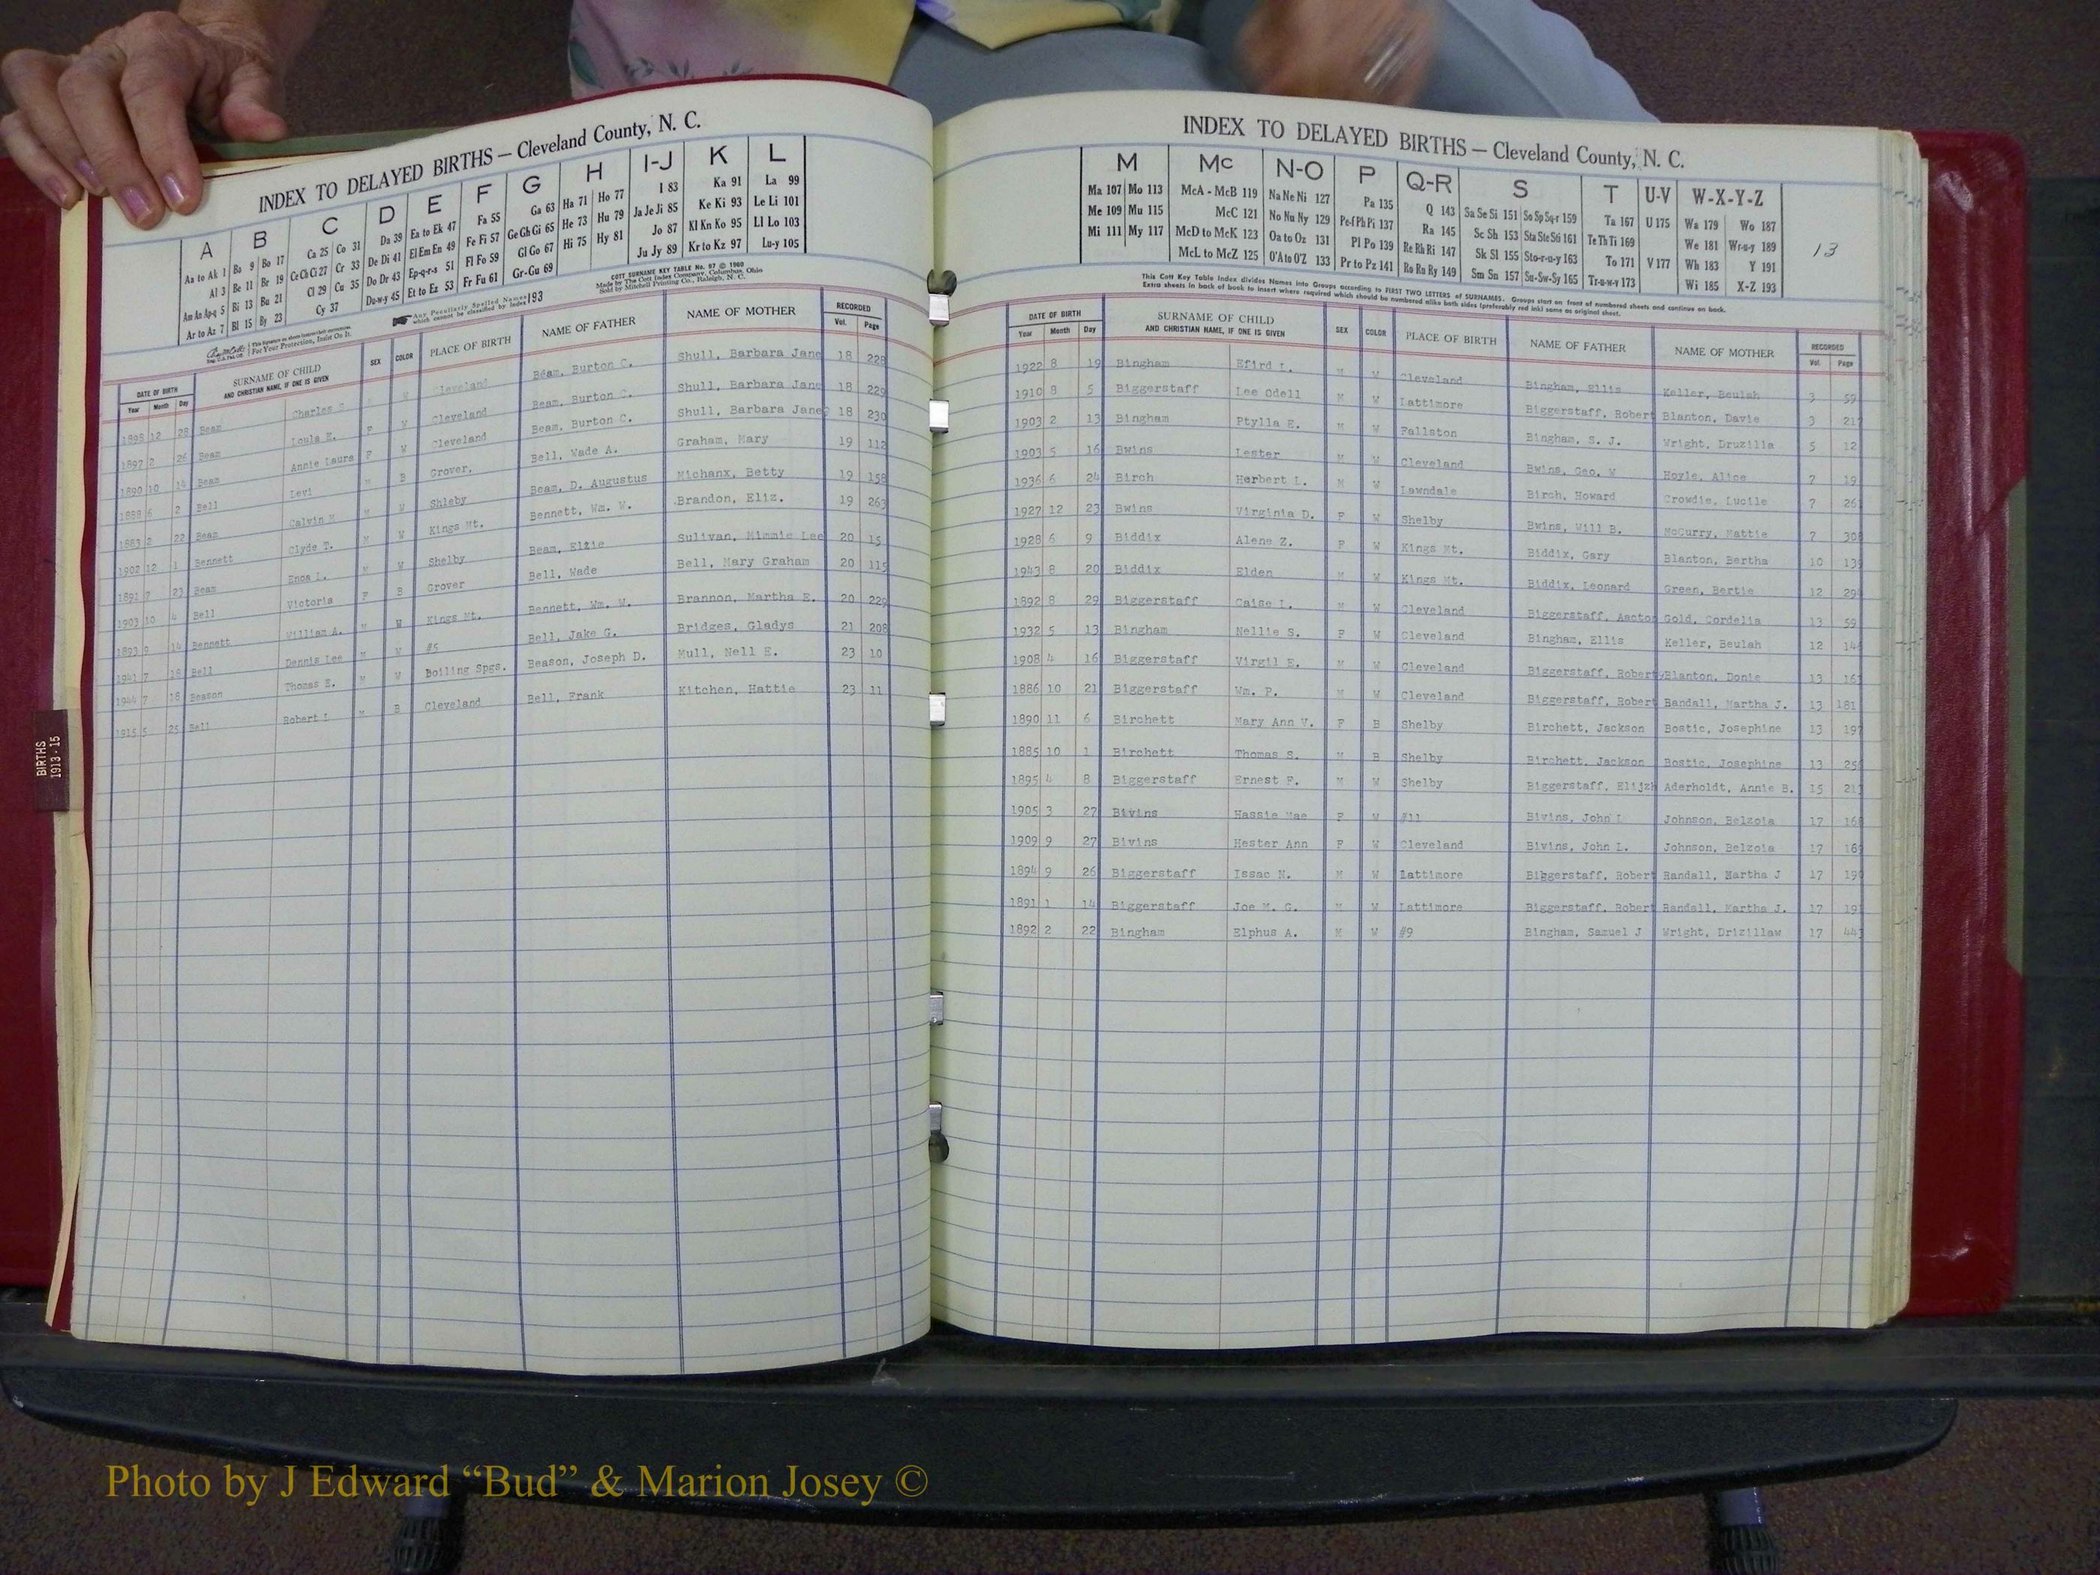 INDEX TO DELAYED BIRTHS — Cleveland County, N. C.
A B C D E F G H I-J K L
Aa to Ak 1 Ba 9 Bo 17 Ca 25 Co 31 Da 39 Ea to Ek 47 Fa 55 Ga 63 Ha 71 Ho 77 I 83 Ka 91 La 99
Al 3 Be 11 Br 19 Ce Ch Ci 27 Cr 33 De Di 41 El Em En 49 Fe Fi 57 Ge Gh Gi 65 He 73 Hu 79 Ja Je Ji 85 Ke Ki 93 Le Li 101
Am An Ap-q 5 Bi 13 Bu 21 Cl 29 Cu 35 Do Dr 43 Ep-q-r-s 51 Fl Fo 59 Gl Go 67 Hi 75 Hy 81 Jo 87 Kl Kn Ko 95 Ll Lo 103
Ar to Az 7 Bl 15 By 23 Cy 37 Du-w-y 45 Et to Ez 53 Fr Fu 61 Gr-Gu 69 Ju Jy 89 Kr to Kz 97 Lu-y 105
Any Peculiarly Spelled Names which cannot be classified by Index 193
COTT SURNAME KEY TABLE No. 97 © 1960
Made by The Cott Index Company, Columbus, Ohio
Sold by Mitchell Printing Co., Raleigh, N. C.
For Your Protection, Insist On It.
DATE OF BIRTH SURNAME OF CHILD AND CHRISTIAN NAME, IF ONE IS GIVEN SEX COLOR PLACE OF BIRTH NAME OF FATHER NAME OF MOTHER RECORDED
Year Month Day Vol. Page
1898 12 28 Beam Charles S W Cleveland Beam, Burton C. Shull, Barbara Jane 18 228
1897 2 26 Beam Loula E. F W Cleveland Beam, Burton C. Shull, Barbara Jane 18 229
1890 10 14 Beam Annie Laura F W Cleveland Beam, Burton C. Shull, Barbara Jane 18 230
1888 6 2 Bell Levi M B Grover, Bell, Wade A. Graham, Mary 19 112
1883 2 22 Beam Calvin M W Shleby Beam, D. Augustus Michanx, Betty 19 158
1902 12 1 Bennett Clyde T. M W Kings Mt. Bennett, Wm. W. Brandon, Eliz. 19 263
1891 7 23 Beam Enos L. M W Shelby Beam, Elzie Sulivan, Mimmie Lee 20 15
1903 10 4 Bell Victoria F B Grover Bell, Wade Bell, Mary Graham 20 115
1893 9 14 Bennett William A. M W Kings Mt. Bennett, Wm. W. Brannon, Martha E. 20 229
1941 7 18 Bell Dennis Lee M W #5 Bell, Jake G. Bridges, Gladys 21 208
1944 7 18 Beason Thomas E. M W Boiling Spgs. Beason, Joseph D. Mull, Nell E. 23 10
1915 5 25 Bell Robert L M B Cleveland Bell, Frank Kitchen, Hattie 23 11
BIRTHS
1913 - 15
INDEX TO DELAYED BIRTHS — Cleveland County, N. C.
M Mc N-O P Q-R S T U-V W-X-Y-Z
Ma 107 Mo 113 McA - McB 119 Na Ne Ni 127 Pa 135 Q 143 Sa Se Si 151 So Sp Sq-r 159 Ta 167 U 175 Wa 179 Wo 187
Me 109 Mu 115 McC 121 No Nu Ny 129 Pe-f Ph Pi 137 Ra 145 Sc Sh 153 Sta Ste Sti 161 Te Th Ti 169 We 181 Wr-u-y 189
Mi 111 My 117 McD to McK 123 Oa to Oz 131 Pl Po 139 Re Rh Ri 147 Sk Sl 155 Sto-r-u-y 163 To 171 V 177 Wh 183 Y 191
McL to McZ 125 O'A to O'Z 133 Pr to Pz 141 Ro Ru Ry 149 Sm Sn 157 Su-Sw-Sy 165 Tr-u-w-y 173 Wi 185 X-Z 193
13
This Cott Key Table Index divides Names into Groups according to FIRST TWO LETTERS of SURNAMES. Groups start on front of numbered sheets and continue on back.
Extra sheets in back of book to insert where required which should be numbered alike both sides (preferably red ink) same as original sheet.
DATE OF BIRTH SURNAME OF CHILD AND CHRISTIAN NAME, IF ONE IS GIVEN SEX COLOR PLACE OF BIRTH NAME OF FATHER NAME OF MOTHER RECORDED
Year Month Day Vol. Page
1922 8 19 Bingham Efird L. M W Cleveland Bingham, Ellis Keller, Beulah 3 59
1910 8 5 Biggerstaff Lee Odell M W Lattimore Biggerstaff, Robert Blanton, Davie 3 217
1903 2 13 Bingham Ptylla E. M W Fallston Bingham, S. J. Wright, Druzilla 5 12
1903 5 16 Bwins Lester M W Cleveland Bwins, Geo. W Hoyle, Alice 7 19
1936 6 24 Birch Herbert L. M W Lawndale Birch, Howard Crowdie, Lucile 7 26
1927 12 23 Bwins Virginia D. F W Shelby Bwins, Will B. McCurry, Mattie 7 308
1928 6 9 Biddix Alene Z. F W Kings Mt. Biddix, Gary Blanton, Bertha 10 139
1943 8 20 Biddix Elden M W Kings Mt. Biddix, Leonard Green, Bertie 12 29
1892 8 29 Biggerstaff Caise L. M W Cleveland Biggerstaff, Aactor Gold, Cordelia 13 59
1932 5 13 Bingham Nellie S. F W Cleveland Bingham, Ellis Keller, Beulah 12 146
1908 4 16 Biggerstaff Virgil E. M W Cleveland Biggerstaff, Robert Blanton, Donie 13 16
1886 10 21 Biggerstaff Wm. P. M W Cleveland Biggerstaff, Robert Randall, Martha J. 13 181
1890 11 6 Birchett Mary Ann V. F B Shelby Birchett, Jackson Bostic, Josephine 13 197
1885 10 1 Birchett Thomas S. M B Shelby Birchett, Jackson Bostic, Josephine 13 25
1895 4 8 Biggerstaff Ernest F. M W Shelby Biggerstaff, Elijzh Aderholdt, Annie B. 15 21
1905 3 27 Bivins Hassie Mae F W #11 Bivins, John L Johnson, Belzoia 17 168
1909 9 27 Bivins Hester Ann F W Cleveland Bivins, John L. Johnson, Belzoia 17 169
1894 9 26 Biggerstaff Issac N. M W Lattimore Biggerstaff, Robert Randall, Martha J 17 190
1891 1 14 Biggerstaff Joe M. G. M W Lattimore Biggerstaff, Robert Randall, Martha J. 17 191
1892 2 22 Bingham Elphus A. M W #9 Bingham, Samuel J Wright, Drizillaw 17 443
Photo by J Edward “Bud” & Marion Josey ©